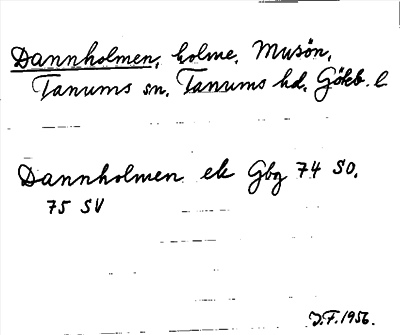 Dannholmen, holme, Musön,
Tanums sn, Tanums hd, Göteb. l.
Dannholmen ek Gbg 74 SO,
75 SV
J.F. 1956.